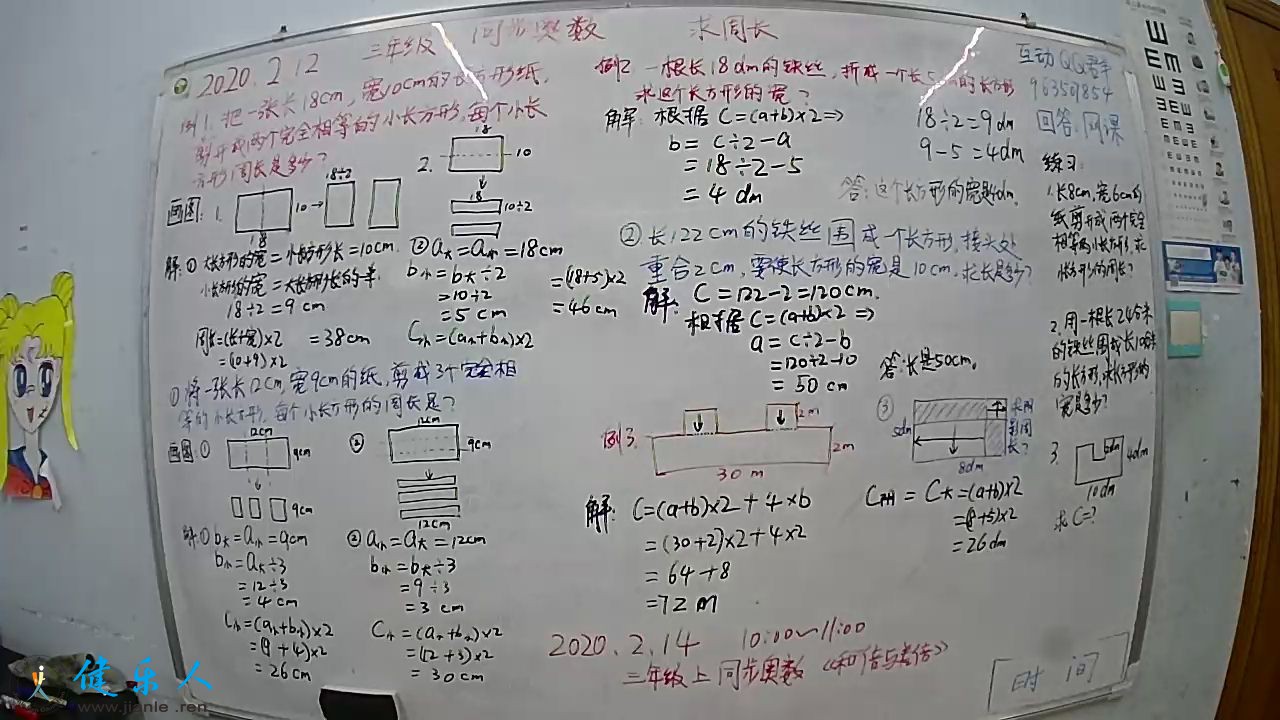 2020.2.12 三年级 同步奥数 求周长
例1.把一张长18cm,宽10cm的长方形纸,
剪开成两个完全相等的小长方形,每个小长
方形周长是多少?
画图:1.
10→
18
18÷2
2.
18
10
18
10÷2
解:①大长方形的宽=小长方形长=10cm.
小长方形的宽=大长方形长的一半.
18÷2=9cm
周长=(长+宽)×2 =38cm
=(10+9)×2
②a大=a小=18cm
b小=b大÷2
=10÷2
=5cm
C小=(a小+b小)×2
=(18+5)×2
=46cm
①将一张长12cm,宽9cm的纸,剪成3个完全相
等的小长方形,每个小长方形的周长是?
画图①
12cm
9cm
9cm
②
12cm
9cm
12cm
解:①b大=a小=9cm
b小=a大÷3
=12÷3
=4cm
C小=(a小+b小)×2
=(9+4)×2
=26cm
②a小=a大=12cm
b小=b大÷3
=9÷3
=3cm
C小=(a小+b小)×2
=(12+3)×2
=30cm
例2.一根长18dm的铁丝,折成一个长5 的长方形
求这个长方形的宽?
解:根据C=(a+b)×2=>
b=c÷2-a
=18÷2-5
=4dm
18÷2=9dm
9-5=4dm
答:这个长方形的宽是4dm.
②长122cm的铁丝围成一个长方形,接头处
重合2cm,要使长方形的宽是10cm,求长是多少?
解:C=122-2=120cm.
根据C=(a+b)×2=>
a=c÷2-b
=120÷2-10
=50cm
答:长是50cm.
例3.
2m
2m
30m
解:C=(a+b)×2+4×b
=(30+2)×2+4×2
=64+8
=72m
③
5dm
8dm
求阴
影周
长?
C阴=C大=(a+b)×2
=(8+5)×2
=26dm
互动QQ
96350854
回答:网课
练习:
1.长8cm,宽6cm的
纸剪开成两个完全
相等的小长方形,求
小长方形的周长?
2.用一根长24分米
的铁丝围成长10分米
的长方形,求长方形的
宽是多少?
3.
4dm
10dm
求C=?
2020.2.14 10:00~11:00
三年级上同步奥数《和倍与差倍》
时间
健乐人
www.jianle.ren